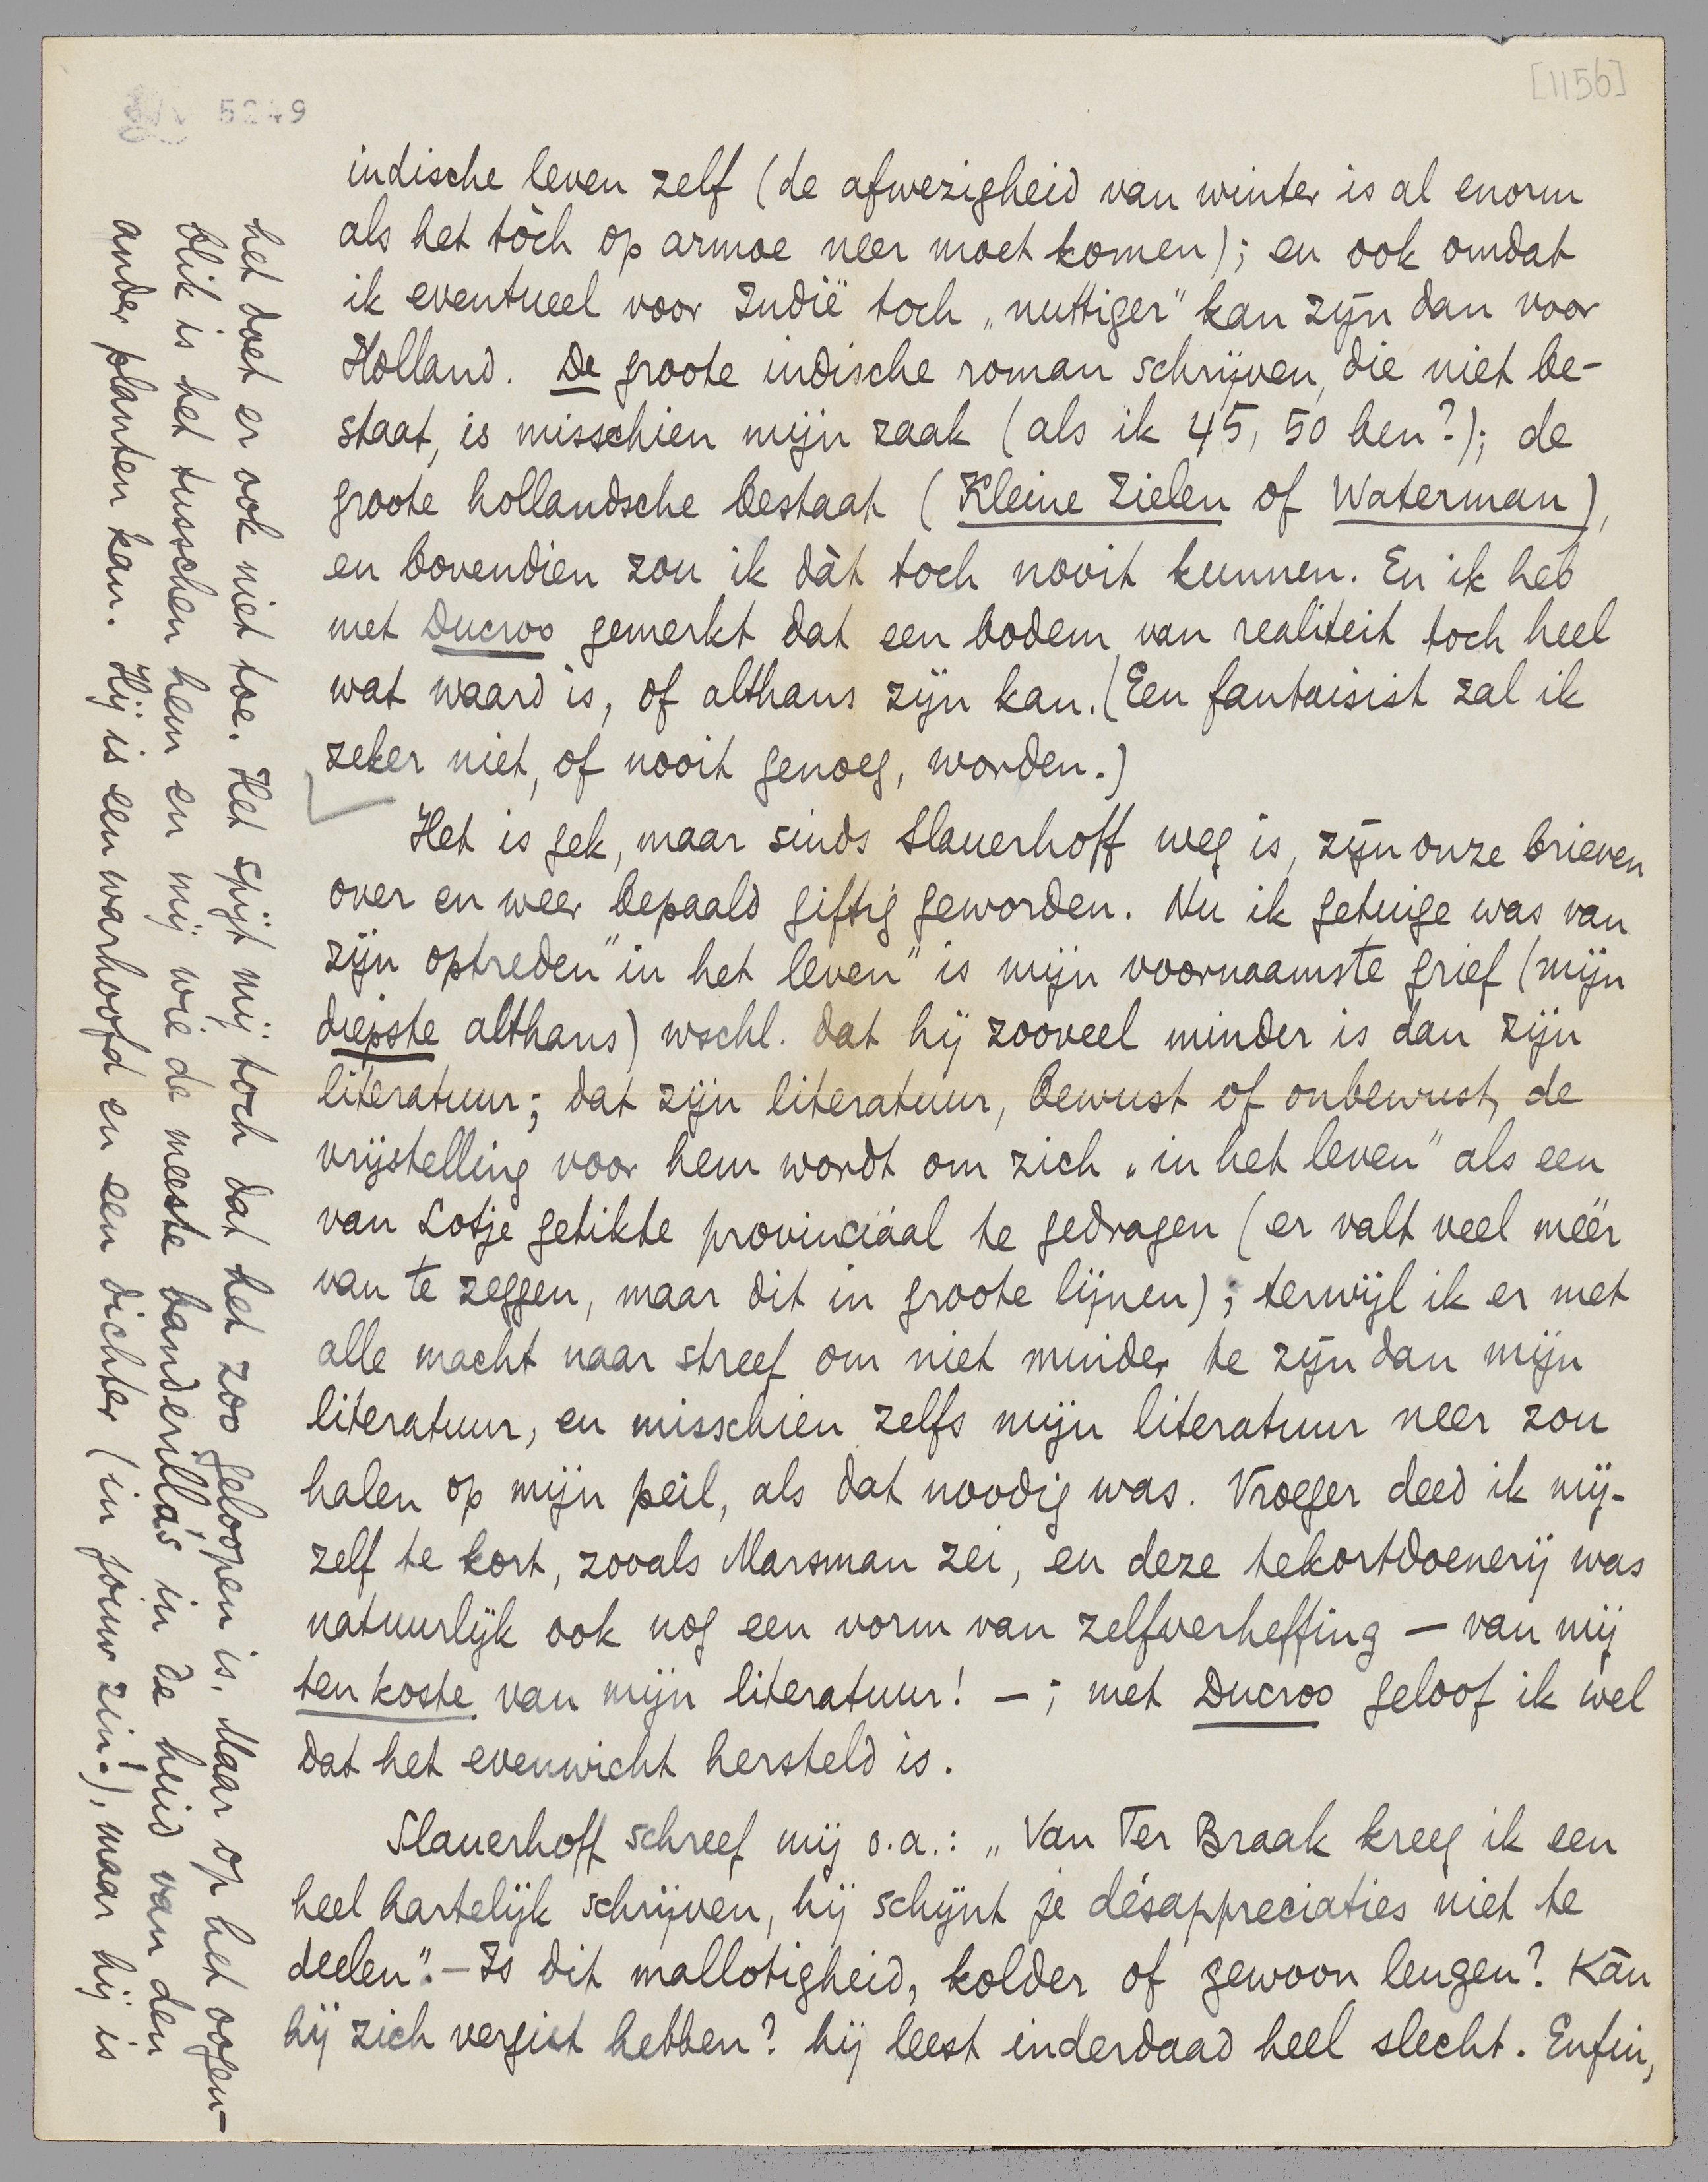 [1156]
5249
indische leven zelf (de afwezigheid van winter is al enorm
als het tòch op armoe neer moet komen); en ook omdat
ik eventueel voor Indië toch „nuttiger" kan zijn dan voor
Holland. De groote indische roman schrijven, die niet be-
staat, is misschien mijn zaak (als ik 45, 50 ben?); de
groote hollandsche bestaat (Kleine Zielen of Waterman),
en bovendien zou ik dàt toch nooit kunnen. En ik heb
met Ducroo gemerkt dat een bodem van realiteit toch heel
wat waard is, of althans zijn kan. (Een fantaisist zal ik
zeker niet, of nooit genoeg, worden.)
Het is gek, maar sinds Slauerhoff weg is, zijn onze brieven
over en weer bepaald giftig geworden. Nu ik getuige was van
zijn optreden "in het leven" is mijn voornaamste grief (mijn
diepste althans) wschl. dat hij zooveel minder is dan zijn
literatuur; dat zijn literatuur, bewust of onbewust, de
vrijstelling voor hem wordt om zich „in het leven" als een
van Lotje getikte provinciáal te gedragen (er valt veel méér
van te zeggen, maar dit in groote lijnen); terwijl ik er met
alle macht naar streef om niet minder te zijn dan mijn
literatuur, en misschien zelfs mijn literatuur neer zou
halen op mijn peil, als dat noodig was. Vroeger deed ik mij-
zelf te kort, zooals Marsman zei, en deze tekortdoenerij was
natuurlijk ook nog een vorm van zelfverheffing — van mij
ten koste van mijn literatuur! —; met Ducroo geloof ik wel
dat het evenwicht hersteld is.
Slauerhoff schreef mij o.a.: „Van Ter Braak kreeg ik een
heel hartelijk schrijven, hij schijnt je désappreciaties niet te
deelen". — Is dit mallotigheid, kolder of gewoon leugen? Kàn
hij zich vergist hebben? hij leest inderdaad heel slecht. Enfin,
het doet er ook niet toe. Het spijt mij toch dat het zoo geloopen is. Maar op het oogen-
blik is het tusschen hem en mij wie de meeste banderilla's in de huid van den
ander planten kan. Hij is een warhoofd en een dichter (in jouw zin!), maar hij is